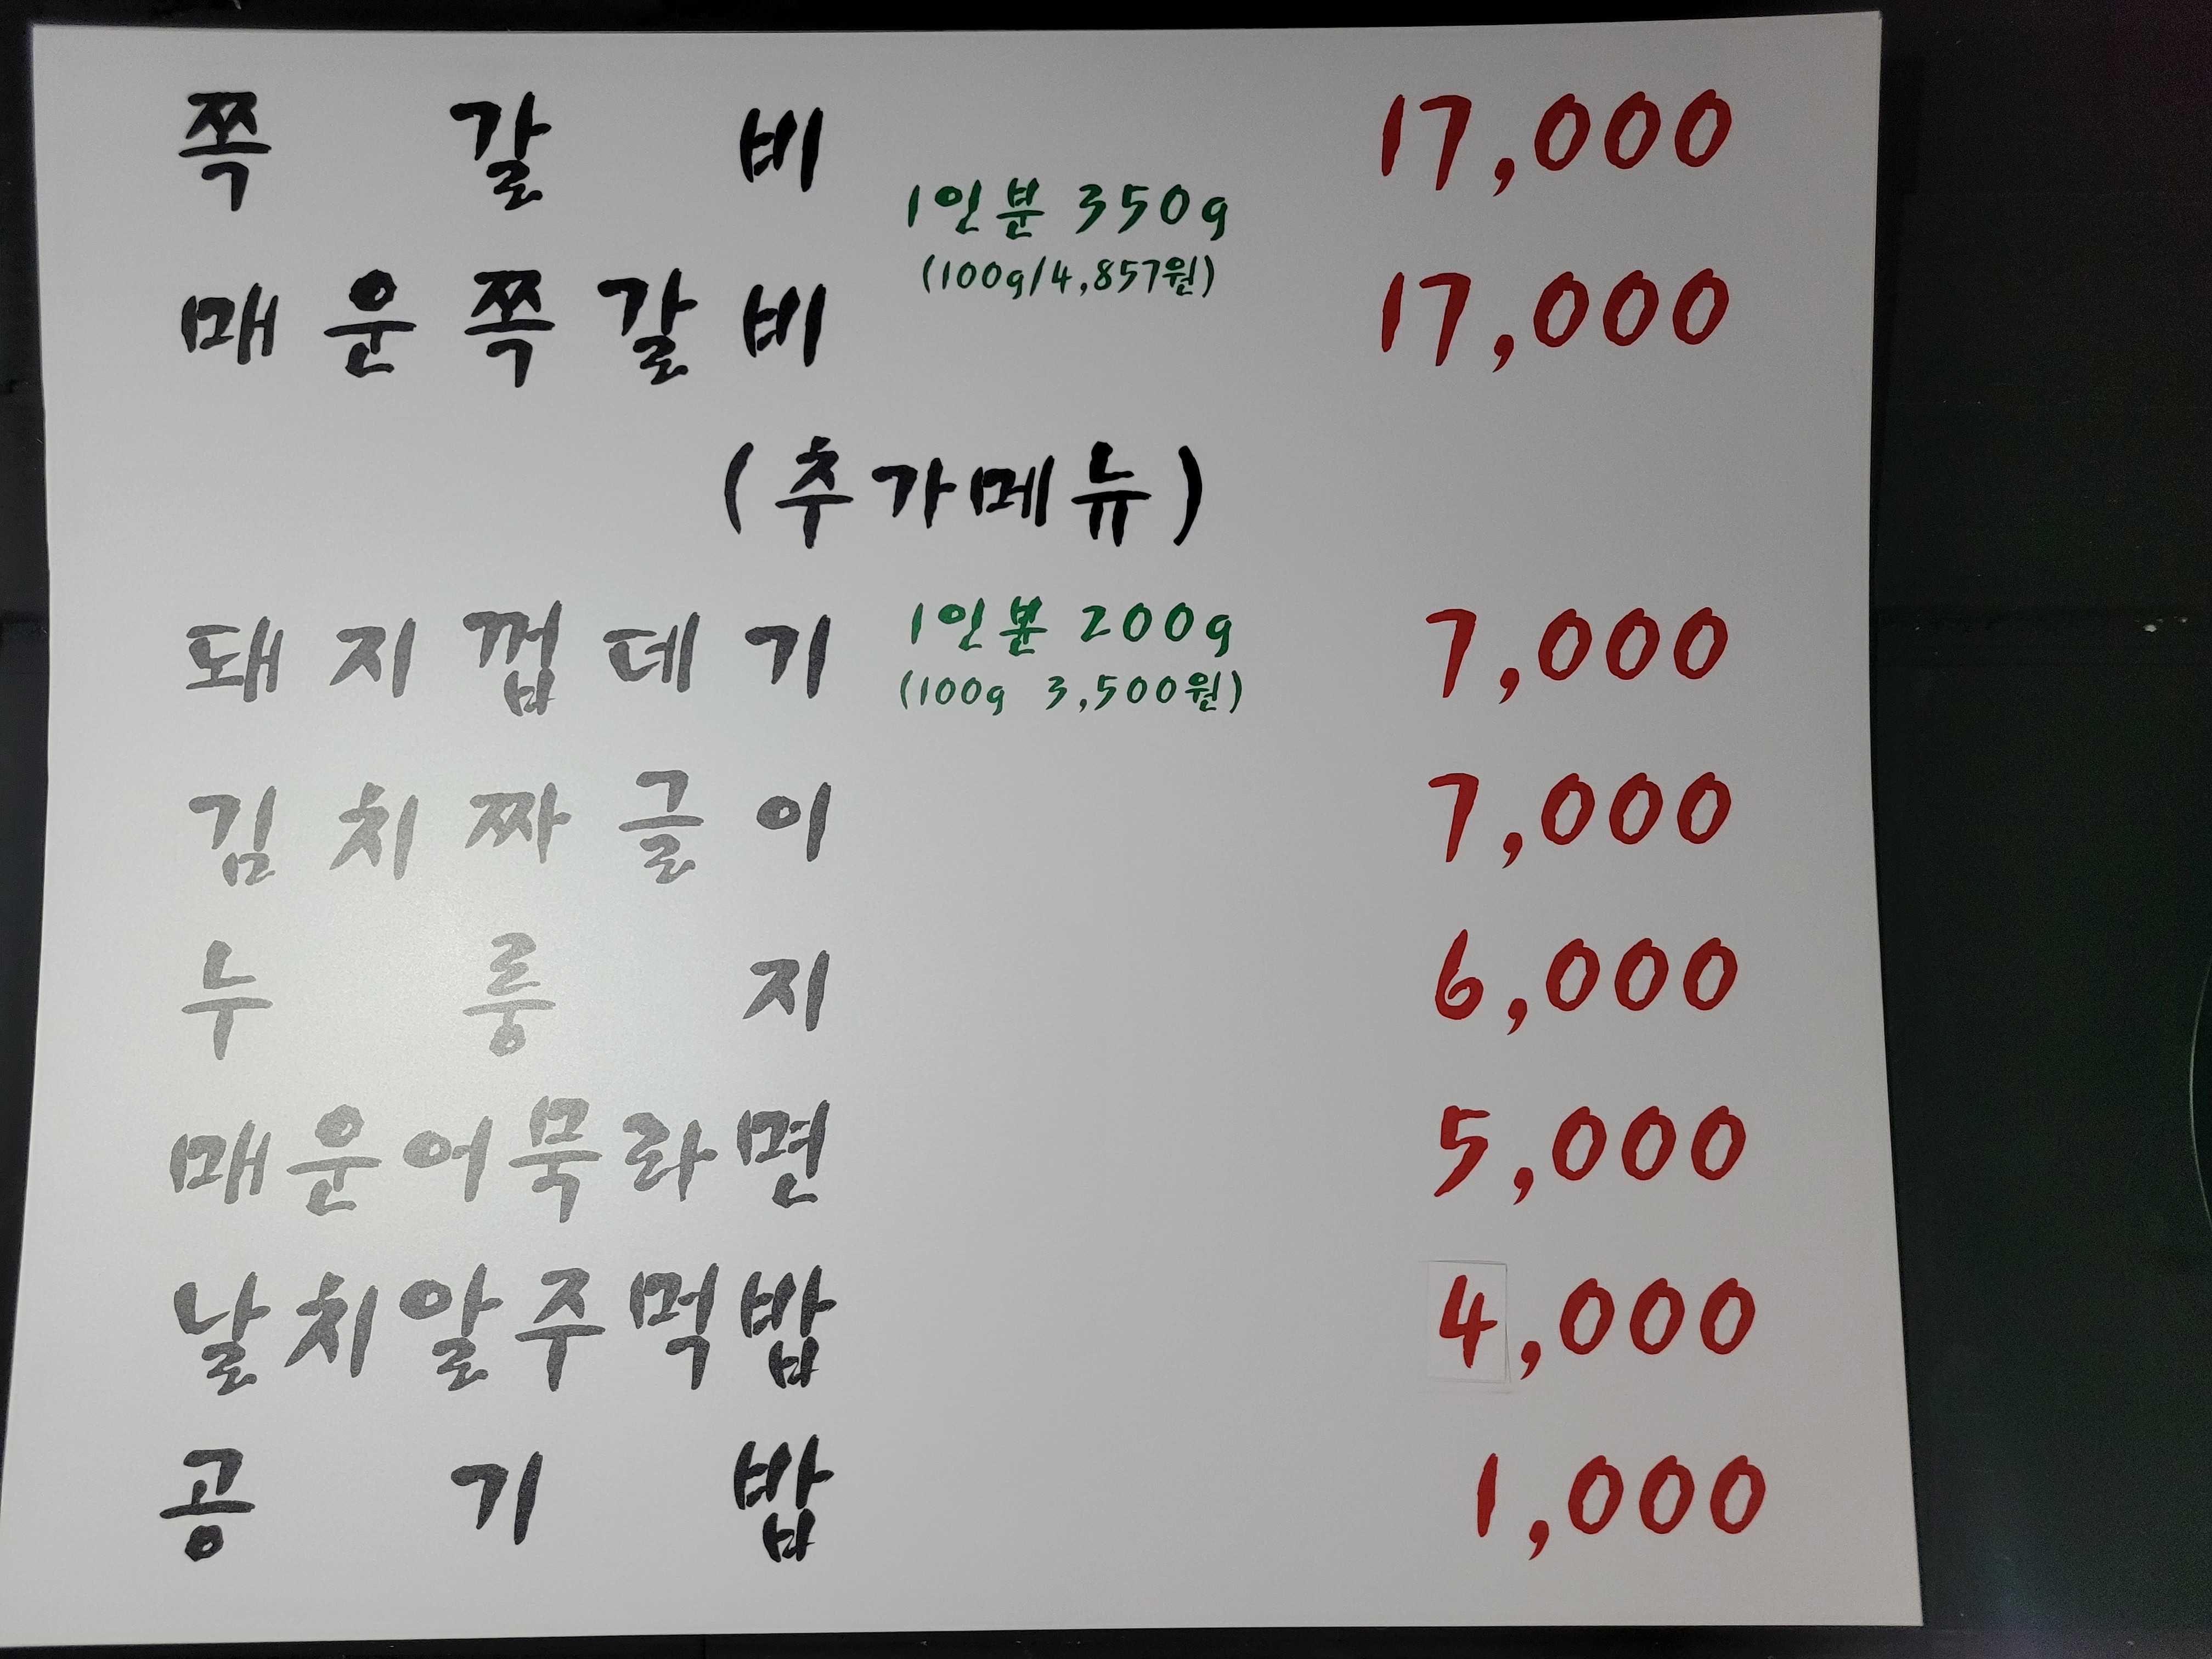 쪽갈비 17,000
1인분 350g
(100g/4,857원)
매운쪽갈비 17,000
(추가메뉴)
돼지껍데기 1인분 200g 7,000
(100g 3,500원)
김치짜글이 7,000
누룽지 6,000
매운어묵라면 5,000
날치알주먹밥 4,000
공기밥 1,000